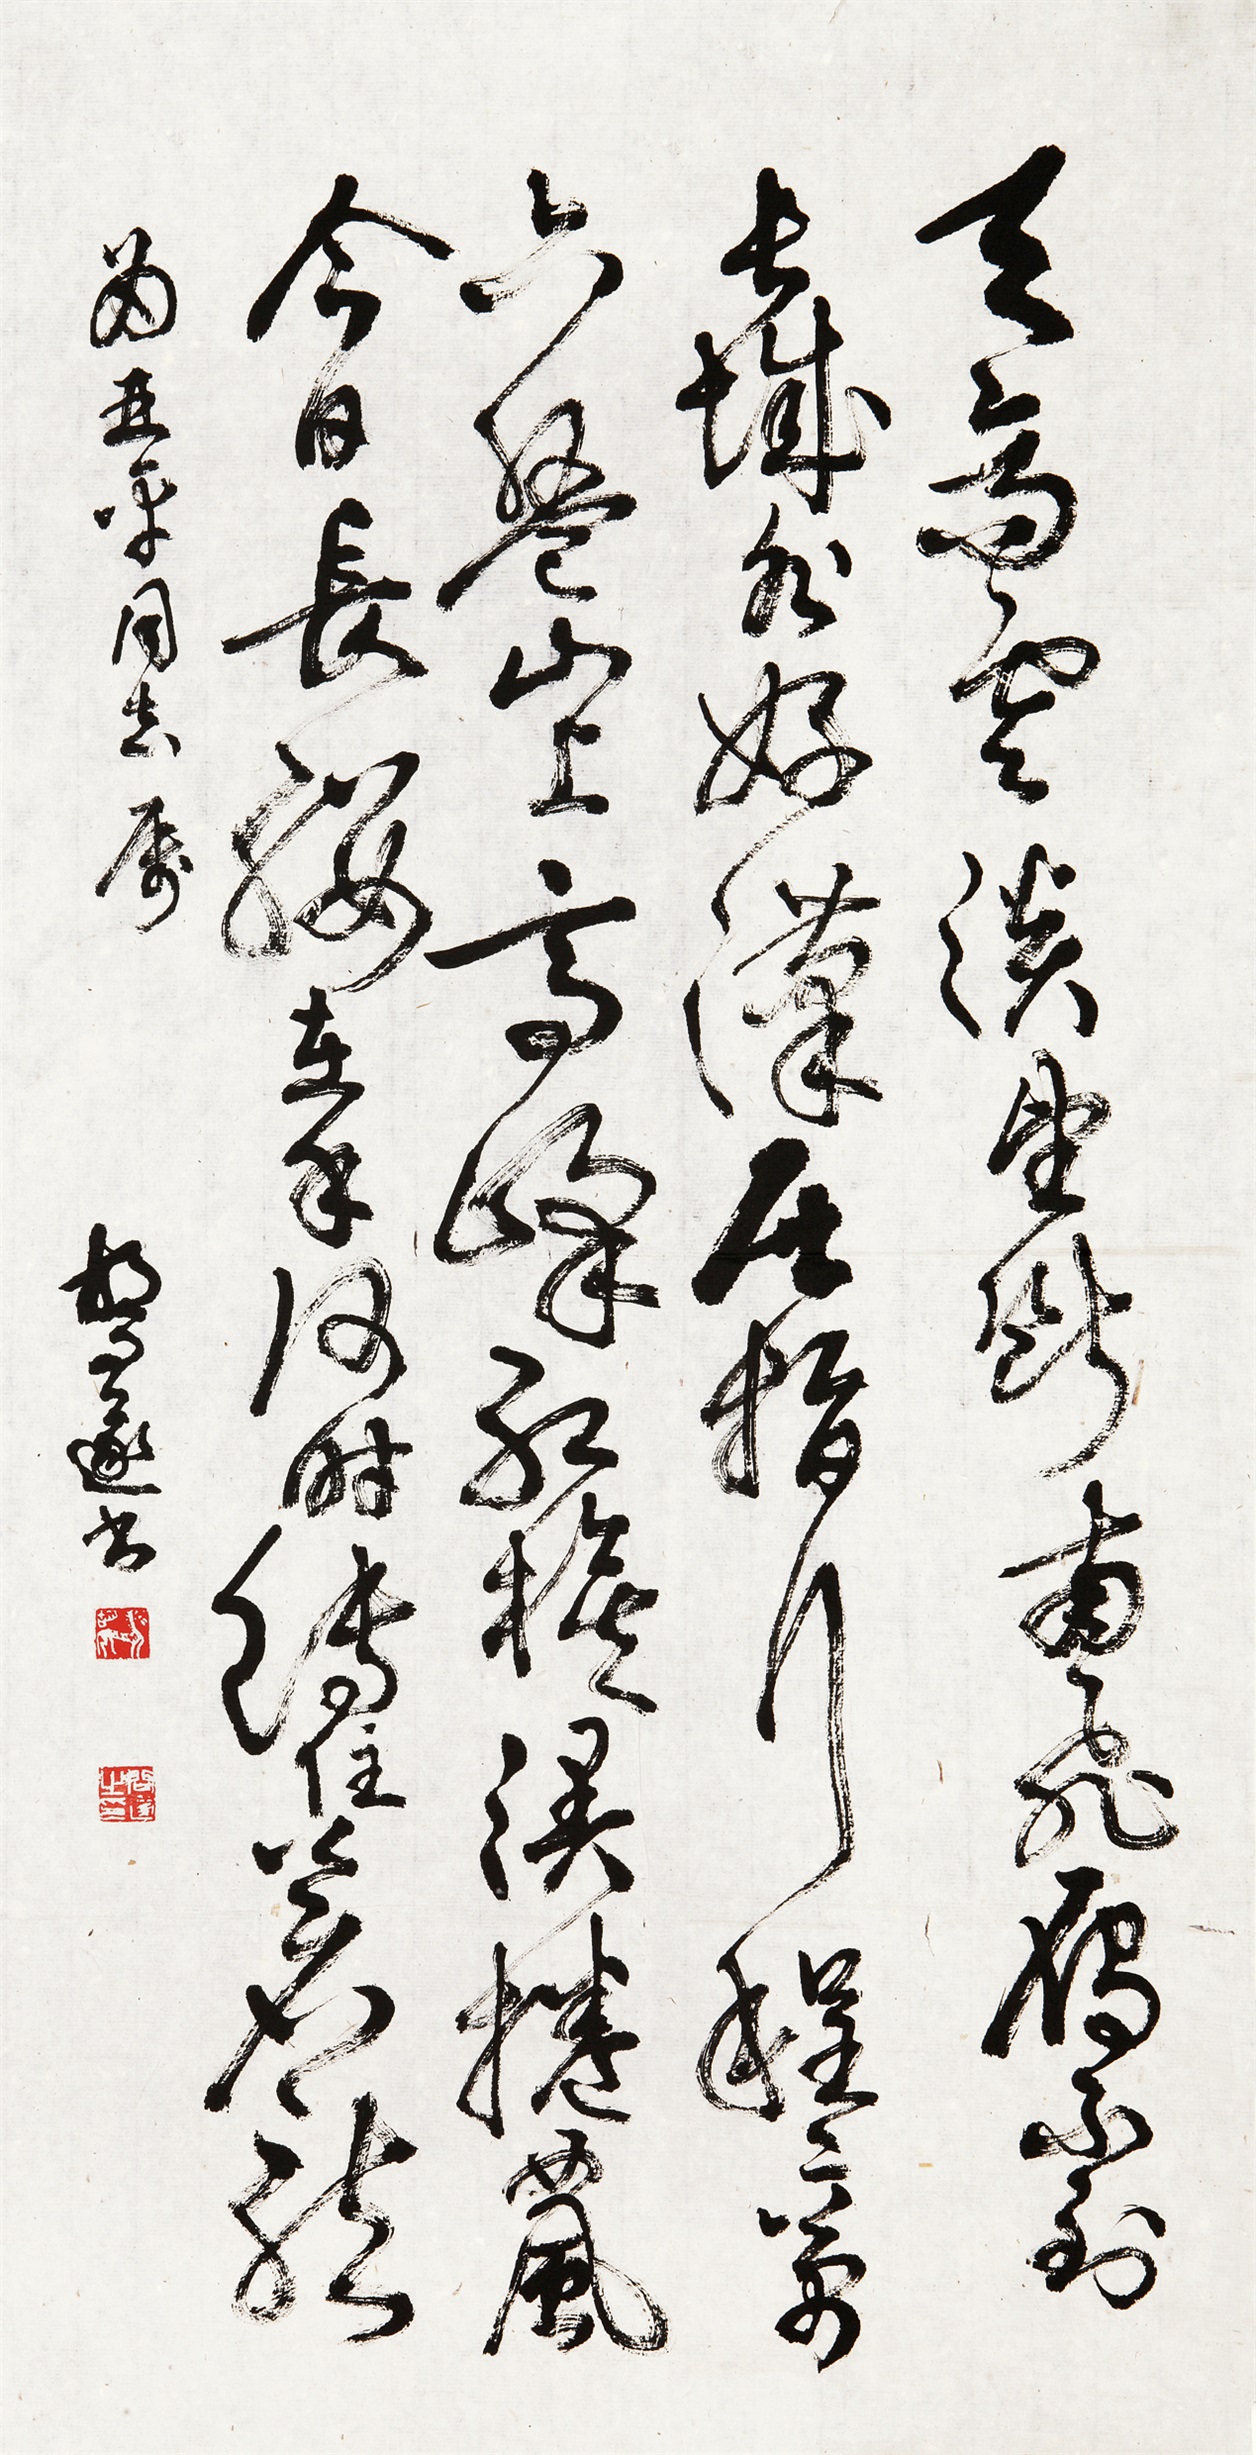 天高雲淡望斷南飛鴈不到
长城非好漢屈指行程二萬
六盤山上高峰紅旗漫捲西風
今日長纓在手何时縛住蒼龍
为亚平同志属
胡问遂书